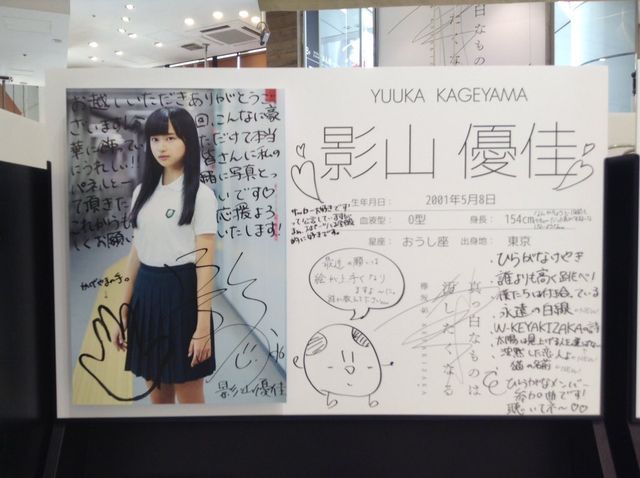 お越しいただきありがとうご
ざいます
回、こんなに豪
華に飾って
ただけて本当
にうれしい!
皆さんに私の
パネルと一緒に写真とっ
て頂きたいです♡
これからも応援よろ
しくお願いいたします!
かげやまの手。
影山優佳
YUUKA KAGEYAMA
影山 優佳
生年月日: 2001年5月8日
血液型: O型 身長: 154cm
星座: おうし座 出身地: 東京
サッカー大好きです!
最近の願いは
絵が上手くなり
ますように。
真っ白なものは
汚したくなる
欅坂46 KEYAKIZAKA46
ひらがなけやき
誰よりも高く跳べ!
僕たちは付き合っている
永遠の白線 NEW
W-KEYAKIZAKAの詩
太陽は見上げる人を選ばない NEW
沈黙した恋人よ NEW
猫の名前 NEW
ひらがなメンバー
参加曲です!
聴いてネ〜♡♡